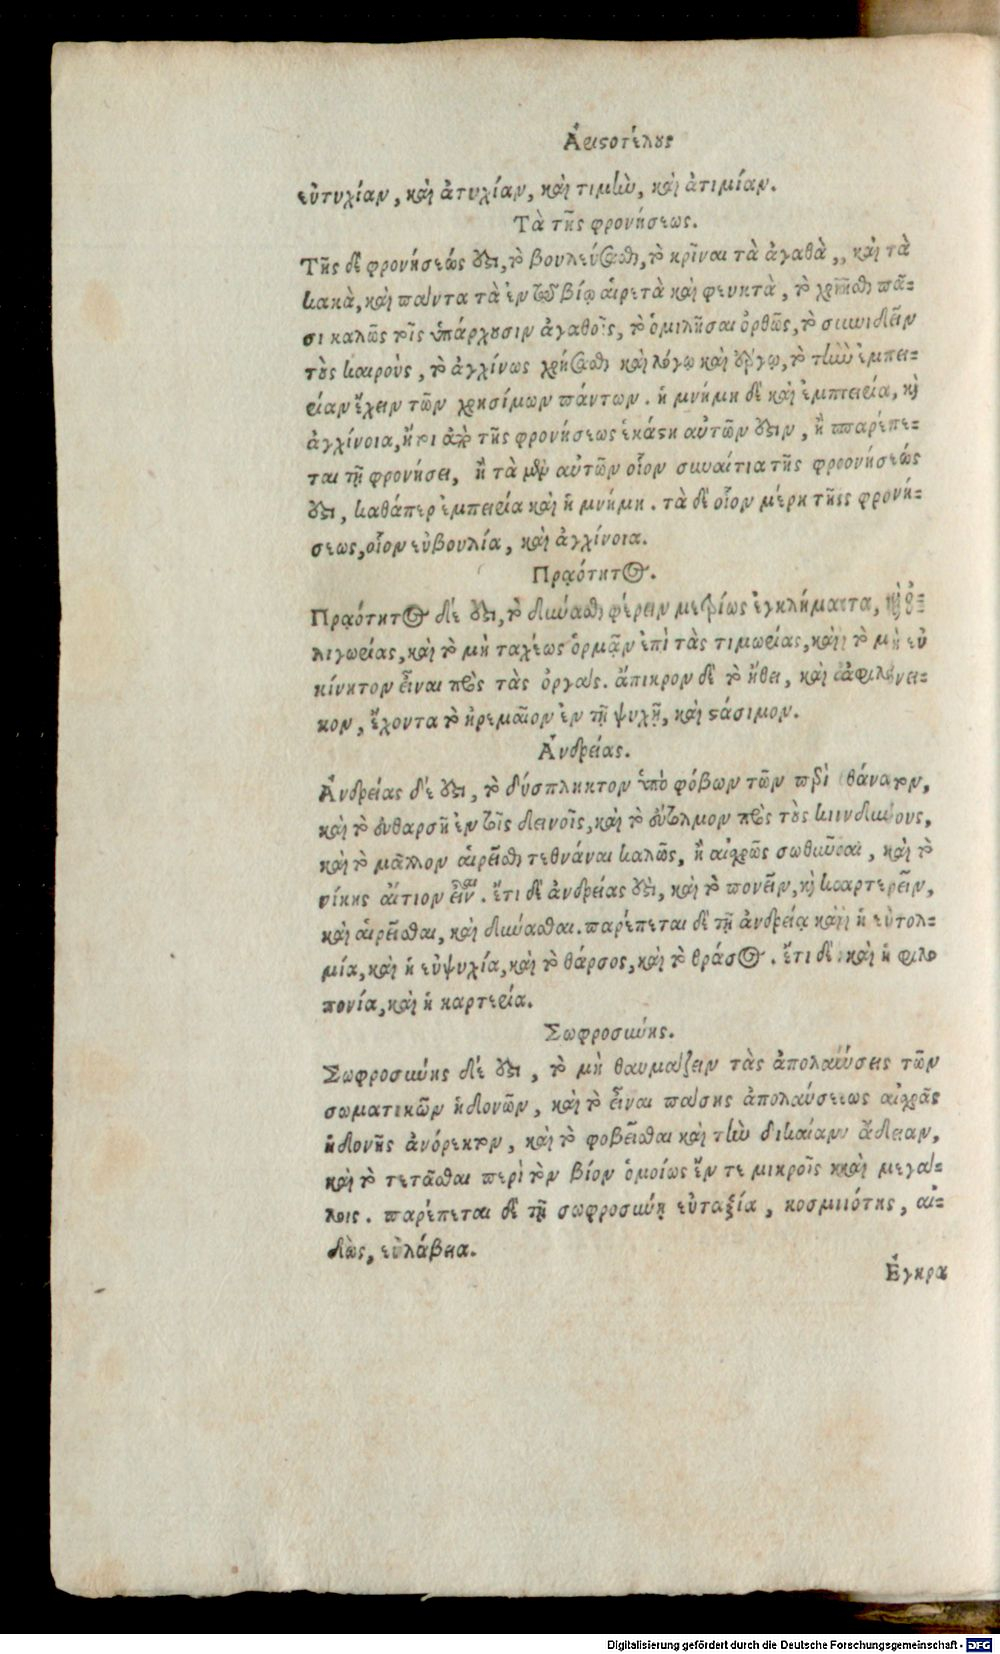 Ἀριστοτέλους
εὐτυχίαν, καὶ ἀτυχίαν, καὶ τιμὴν, καὶ ἀτιμίαν.
Τὰ τῆς φρονήσεως.
Τῆς δὲ φρονήσεώς ἐστι, τὸ βουλεύσασθαι, τὸ κρῖναι τὰ ἀγαθὰ,, καὶ τὰ
κακὰ, καὶ πάντα τὰ ἐν τῷ βίῳ αἱρετὰ καὶ φευκτὰ, τὸ χρῆσθαι πᾶ-
σι καλῶς τοῖς ὑπάρχουσιν ἀγαθοῖς, τὸ ὁμιλῆσαι ὀρθῶς, τὸ συνιδεῖν
τοὺς καιροὺς, τὸ ἀγχίνως χρήσασθαι καὶ λόγῳ καὶ ἔργῳ, τὸ τὴν ἐμπει-
ρίαν ἔχειν τῶν χρησίμων πάντων. ἡ μνήμη δὲ καὶ ἐμπειρία, καὶ
ἀγχίνοια, ἤτοι ἀπὸ τῆς φρονήσεως ἑκάστη αὐτῶν ἐστιν, ἢ παρέπε-
ται τῇ φρονήσει, ἢ τὰ μὲν αὐτῶν οἷον συναίτια τῆς φρονήσεώς
ἐστι, καθάπερ ἐμπειρία καὶ ἡ μνήμη. τὰ δὲ οἷον μέρη τῆς φρονή-
σεως, οἷον εὐβουλία, καὶ ἀγχίνοια.
Πρᾳότητος.
Πρᾳότητος δέ ἐστι, τὸ δύνασθαι φέρειν μετρίως ἐγκλήματα, καὶ ὀ-
λιγωρίας, καὶ τὸ μὴ ταχέως ὁρμᾷν ἐπὶ τὰς τιμωρίας, καὶ τὸ μὴ εὐ
κίνητον εἶναι πρὸς τὰς ὀργάς. ἄπικρον δὲ τὸ ἤθει, καὶ ἀφιλόνει-
κον, ἔχοντα τὸ ἠρεμαῖον ἐν τῇ ψυχῇ, καὶ στάσιμον.
Ἀνδρείας.
Ἀνδρείας δέ ἐστι, τὸ δύσπληκτον ὑπὸ φόβων τῶν περὶ θάνατον,
καὶ τὸ εὐθαρσῆ ἐν τοῖς δεινοῖς, καὶ τὸ εὔτολμον πρὸς τοὺς κινδύνους,
καὶ τὸ μᾶλλον αἱρεῖσθαι τεθνάναι καλῶς, ἢ αἰσχρῶς σωθῆναι, καὶ τὸ
νίκης αἴτιον εἶναι. ἔτι δὲ ἀνδρείας ἐστὶ, καὶ τὸ πονεῖν, καὶ καρτερεῖν,
καὶ αἱρεῖσθαι, καὶ δύνασθαι. παρέπεται δὲ τῇ ἀνδρείᾳ καὶ ἡ εὐτολ-
μία, καὶ ἡ εὐψυχία, καὶ τὸ θάρσος, καὶ τὸ θράσος. ἔτι δὲ καὶ ἡ φιλο
πονία, καὶ ἡ καρτερία.
Σωφροσύνης.
Σωφροσύνης δέ ἐστι, τὸ μὴ θαυμάζειν τὰς ἀπολαύσεις τῶν
σωματικῶν ἡδονῶν, καὶ τὸ εἶναι πάσης ἀπολαύσεως αἰσχρᾶς
ἡδονῆς ἀνόρεκτον, καὶ τὸ φοβεῖσθαι καὶ τὴν δικαίαν ἄδειαν,
καὶ τὸ τετᾶσθαι περὶ τὸν βίον ὁμοίως ἔν τε μικροῖς καὶ μεγά-
λοις. παρέπεται δὲ τῇ σωφροσύνῃ εὐταξία, κοσμιότης, αἰ-
δὼς, εὐλάβεια.
Ἐγκρα
Digitalisierung gefördert durch die Deutsche Forschungsgemeinschaft - DFG